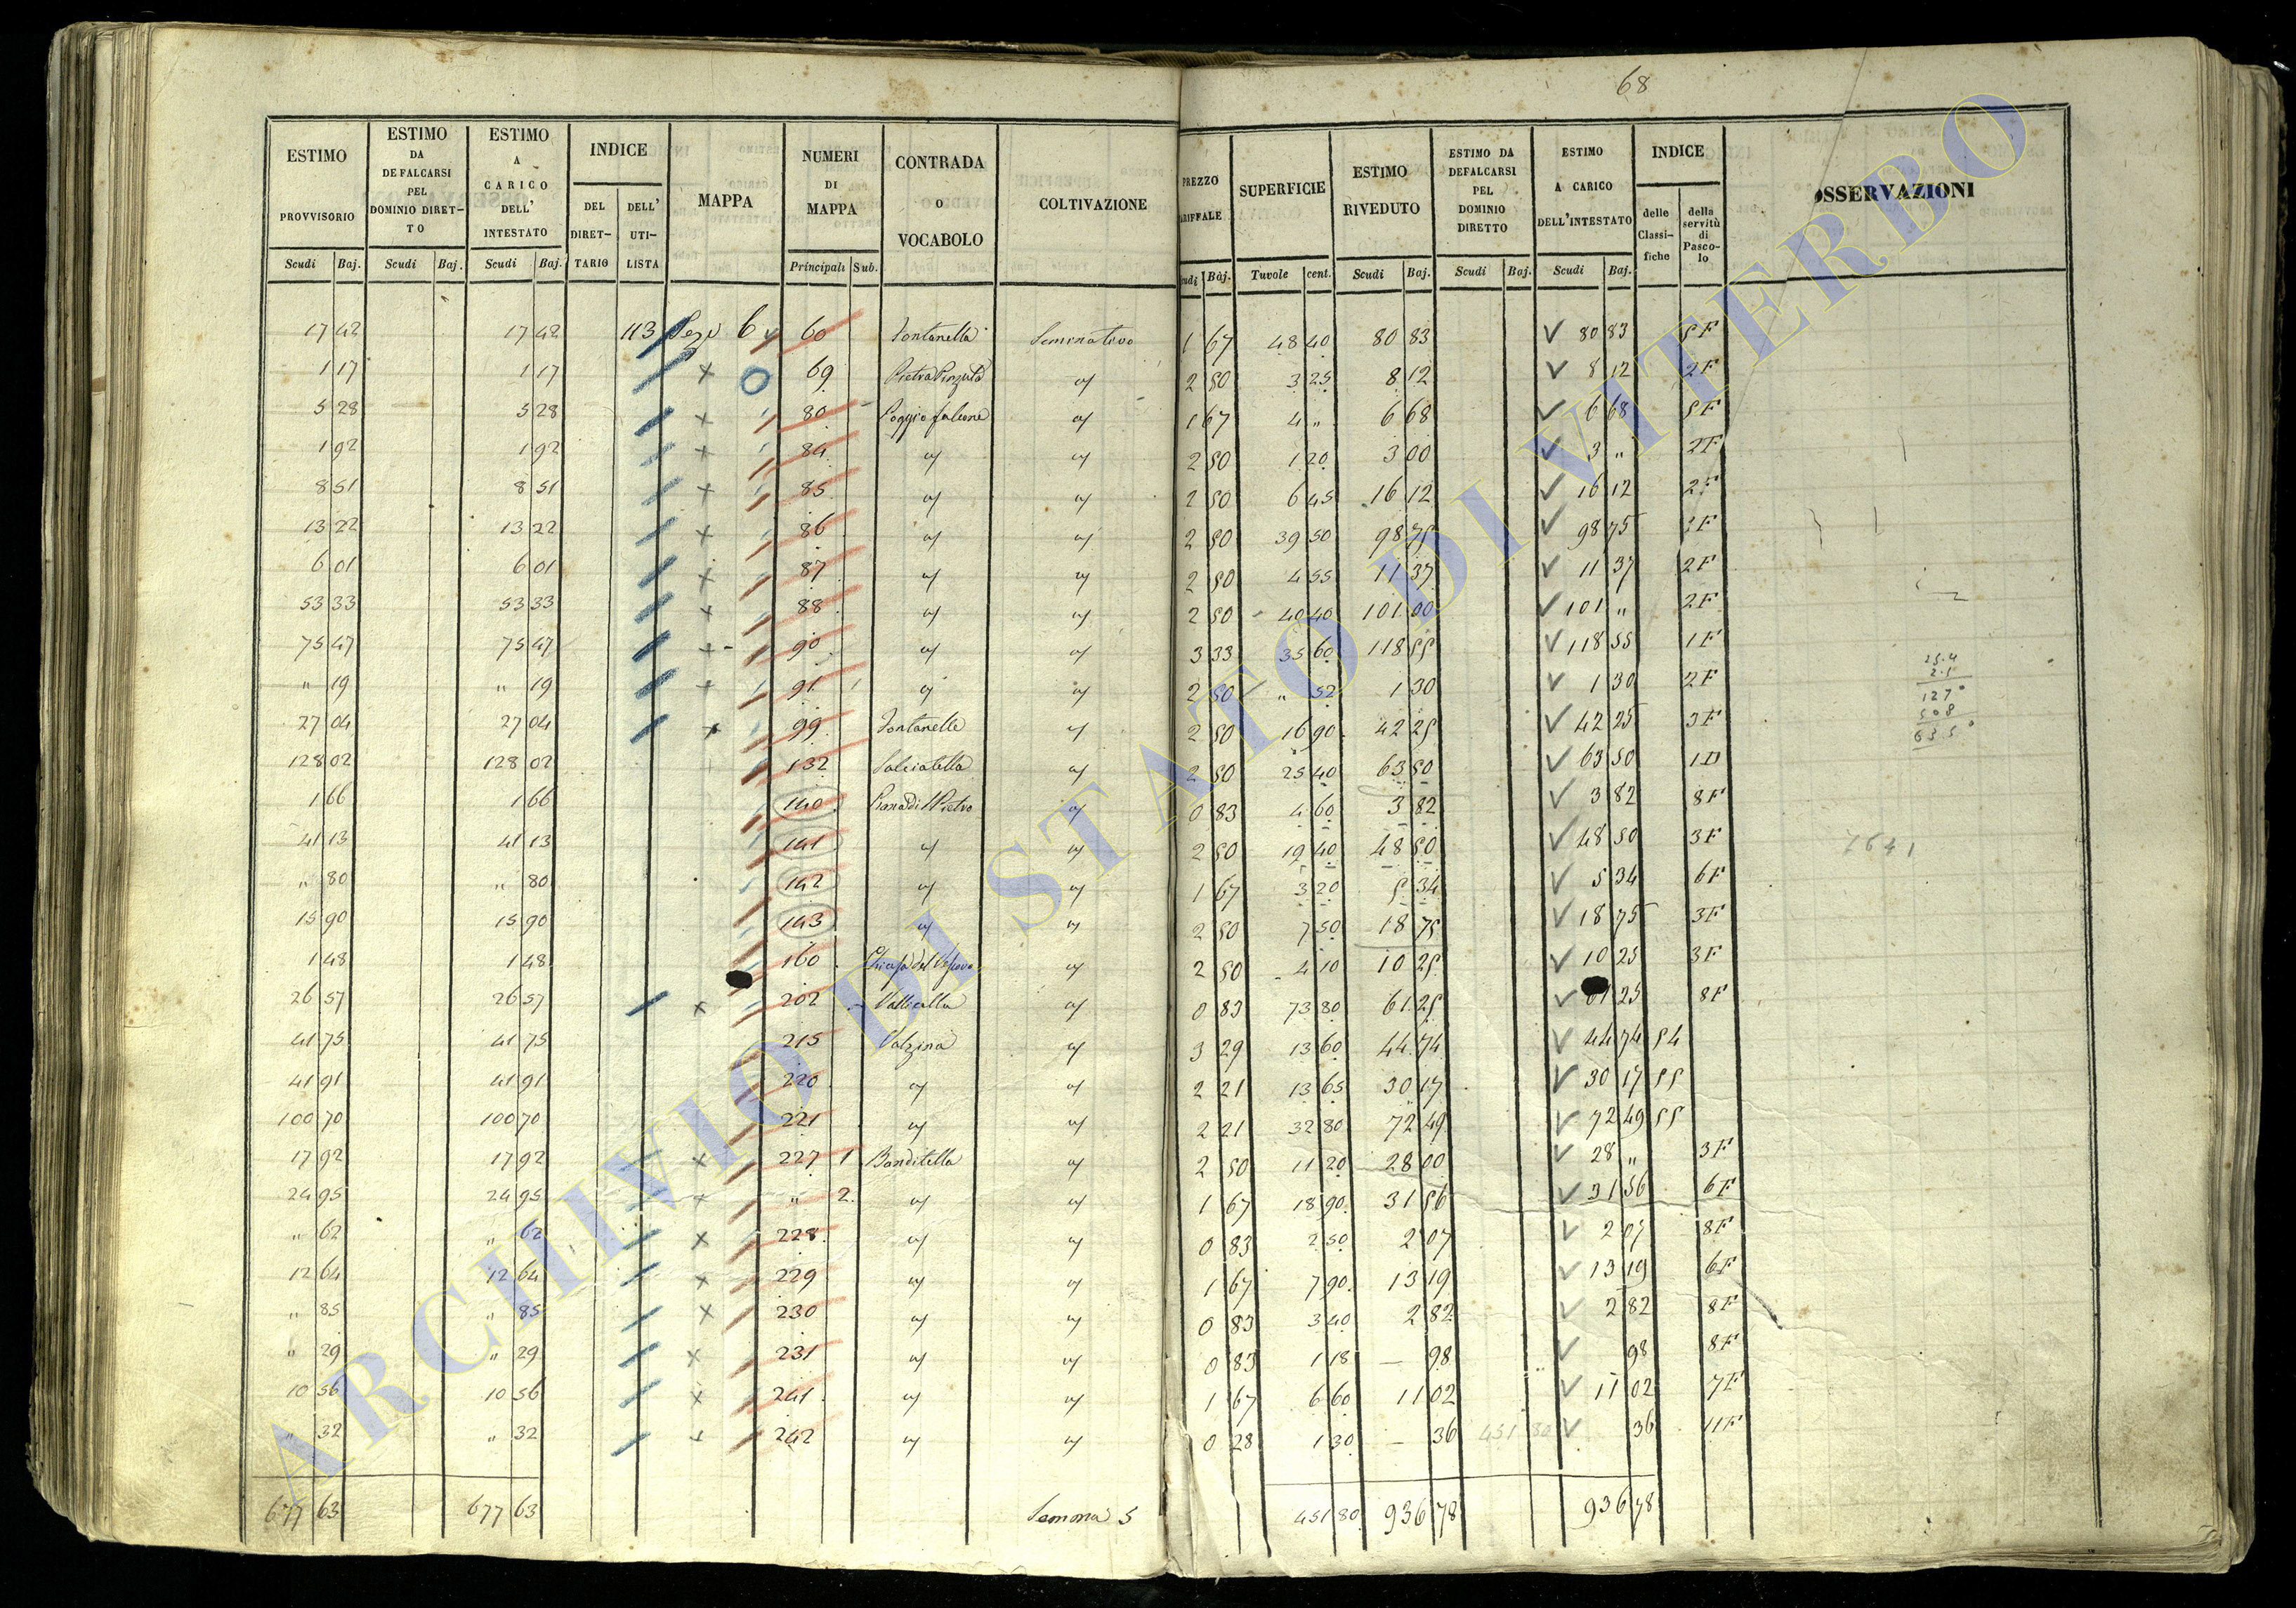 68
ESTIMO PROVVISORIO Scudi Baj. | ESTIMO DA DEFALCARSI PEL DOMINIO DIRET-TO Scudi Baj. | ESTIMO A CARICO DELL' INTESTATO Scudi Baj. | INDICE DEL DIRET-TARIO | DELL' UTI-LISTA | MAPPA | NUMERI DI MAPPA Principali Sub. | CONTRADA O VOCABOLO | COLTIVAZIONE | PREZZO TARIFFALE Scudi Baj. | SUPERFICIE Tavole cent. | ESTIMO RIVEDUTO Scudi Baj. | ESTIMO DA DEFALCARSI PEL DOMINIO DIRETTO Scudi Baj. | ESTIMO A CARICO DELL'INTESTATO Scudi Baj. | INDICE delle Classi-fiche | della servitù di Pasco-lo | OSSERVAZIONI
17 42 | 17 42 | 113 | Sez 6 | 60 | Fontanella | Seminativo | 1 67 | 48 40 | 80 83 | 80 83 | 5F
1 17 | 1 17 | 69 | Pietra Pinzuta | " | 2 50 | 3 25 | 8 12 | 8 12 | 2F
5 28 | 5 28 | 80 | Poggio falcone | " | 1 67 | 4 " | 6 68 | 6 68 | 5F
1 92 | 1 92 | 84 | " | " | 2 50 | 1 20 | 3 00 | 3 " | 2F
8 51 | 8 51 | 85 | " | " | 2 50 | 6 45 | 16 12 | 16 12 | 2F
13 22 | 13 22 | 86 | " | " | 2 50 | 39 50 | 98 75 | 98 75 | 2F
6 01 | 6 01 | 87 | " | " | 2 50 | 4 55 | 11 37 | 11 37 | 2F
53 33 | 53 33 | 88 | " | " | 2 50 | 40 40 | 101 00 | 101 " | 2F
75 47 | 75 47 | 90 | " | " | 3 33 | 35 60 | 118 55 | 118 55 | 1F
" 19 | " 19 | 91 1 | " | " | 2 50 | " 52 | 1 30 | 1 30 | 2F
27 04 | 27 04 | 99 | Fontanelle | " | 2 50 | 16 90 | 42 25 | 42 25 | 3F
128 02 | 128 02 | 132 | Salciatella | " | 2 50 | 25 40 | 63 50 | 63 50 | 1D
1 66 | 1 66 | 140 | " | 0 83 | 4 60 | 3 82 | 3 82 | 8F
41 13 | 41 13 | 141 | " | " | 2 50 | 19 40 | 48 50 | 48 50 | 3F
" 80 | " 80 | 142 | " | " | 1 67 | 3 20 | 5 34 | 5 34 | 6F
15 90 | 15 90 | 143 | " | " | 2 50 | 7 50 | 18 75 | 18 75 | 3F
1 48 | 1 48 | 160 | " | 2 50 | 4 10 | 10 25 | 10 25 | 3F
26 57 | 26 57 | 202 | Vallicella | " | 0 83 | 73 80 | 61 25 | 61 25 | 8F
41 75 | 41 75 | 215 | Valzina | " | 3 29 | 13 60 | 44 74 | 44 74 | 54
41 91 | 41 91 | 220 | " | " | 2 21 | 13 65 | 30 17 | 30 17 | 55
100 70 | 100 70 | 221 | " | " | 2 21 | 32 80 | 72 49 | 72 49 | 55
17 92 | 17 92 | 227 1 | Banditella | " | 2 50 | 11 20 | 28 00 | 28 " | 3F
24 95 | 24 95 | " 2 | " | " | 1 67 | 18 90 | 31 56 | 31 56 | 6F
" 62 | " 62 | 228 | " | " | 0 83 | 2 50 | 2 07 | 2 07 | 8F
12 64 | 12 64 | 229 | " | " | 1 67 | 7 90 | 13 19 | 13 19 | 6F
" 85 | " 85 | 230 | " | " | 0 83 | 3 40 | 2 82 | 2 82 | 8F
" 29 | " 29 | 231 | " | " | 0 83 | 1 18 | — 98 | 98 | 8F
10 56 | 10 56 | 241 | " | " | 1 67 | 6 60 | 11 02 | 11 02 | 7F
" 32 | " 32 | 242 | " | " | 0 28 | 1 30 | — 36 | 451 80 | 36 | 11F
677 63 | 677 63 | Somma S | 451 80 | 936 78 | 936 78
25.4
2.5
127 0
508
63 5 0
7641
ARCHIVIO DI STATO DI VITERBO